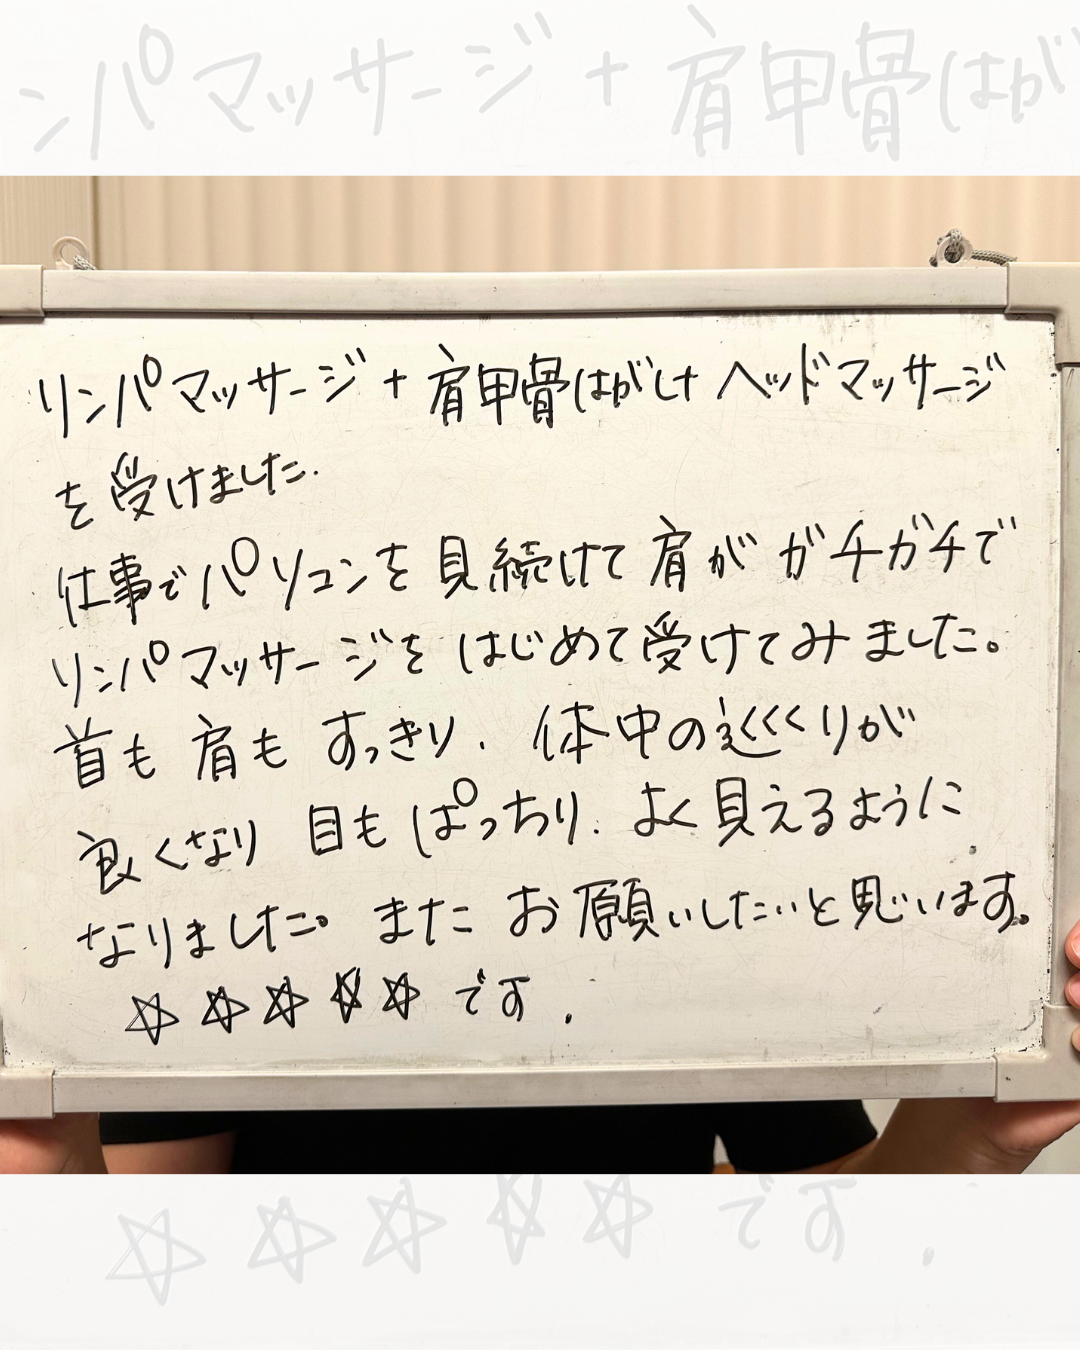 ンパマッサージ+肩甲骨はが
リンパマッサージ+肩甲骨はがし+ヘッドマッサージ
を受けました.
仕事でパソコンを見続けて肩がガチガチで
リンパマッサージをはじめて受けてみました。
首も肩もすっきり.体中の巡くりが
良くなり目もぱっちり.よく見えるように
なりました。またお願いしたいと思います。
☆☆☆☆☆です.
☆☆☆☆☆です.